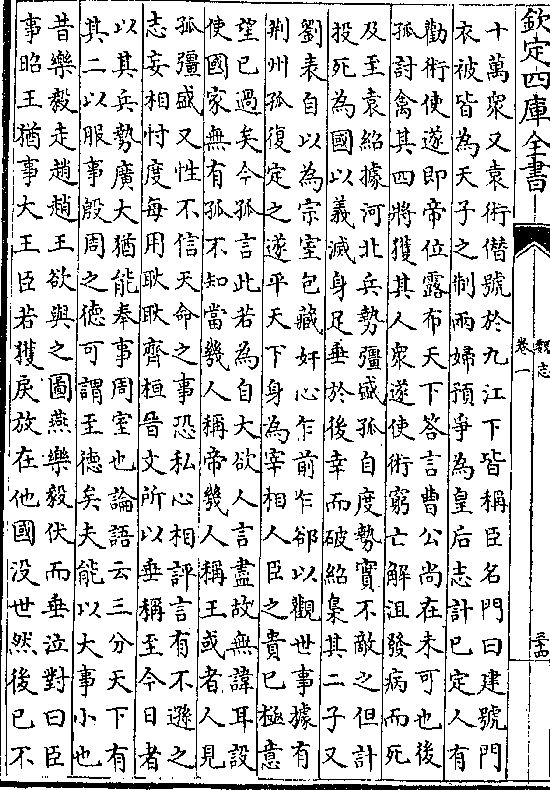 欽定四庫全書
魏志
卷一
三十四
十萬衆又袁術僭號於九江下皆稱臣名門曰建號門
衣被皆為天子之制兩婦預爭為皇后志計已定人有
勸術使遂即帝位露布天下答言曹公尚在未可也後
孤討禽其四將獲其人衆遂使術窮亡解沮發病而死
及至袁紹據河北兵勢彊盛孤自度勢實不敵之但計
投死為國以義滅身足垂於後幸而破紹梟其二子又
劉表自以為宗室包藏奸心乍前乍郤以觀世事據有
荆州孤復定之遂平天下身為宰相人臣之貴已極意
望已過矣今孤言此若為自大欲人言盡故無諱耳設
使國家無有孤不知當幾人稱帝幾人稱王或者人見
孤彊盛又性不信天命之事恐私心相評言有不遜之
志妄相忖度每用耿耿齊桓晉文所以垂稱至今日者
以其兵勢廣大猶能奉事周室也論語云三分天下有
其二以服事殷周之德可謂至德矣夫能以大事小也
昔樂毅走趙趙王欲與之圖燕樂毅伏而垂泣對曰臣
事昭王猶事大王臣若獲戾放在他國没世然後已不